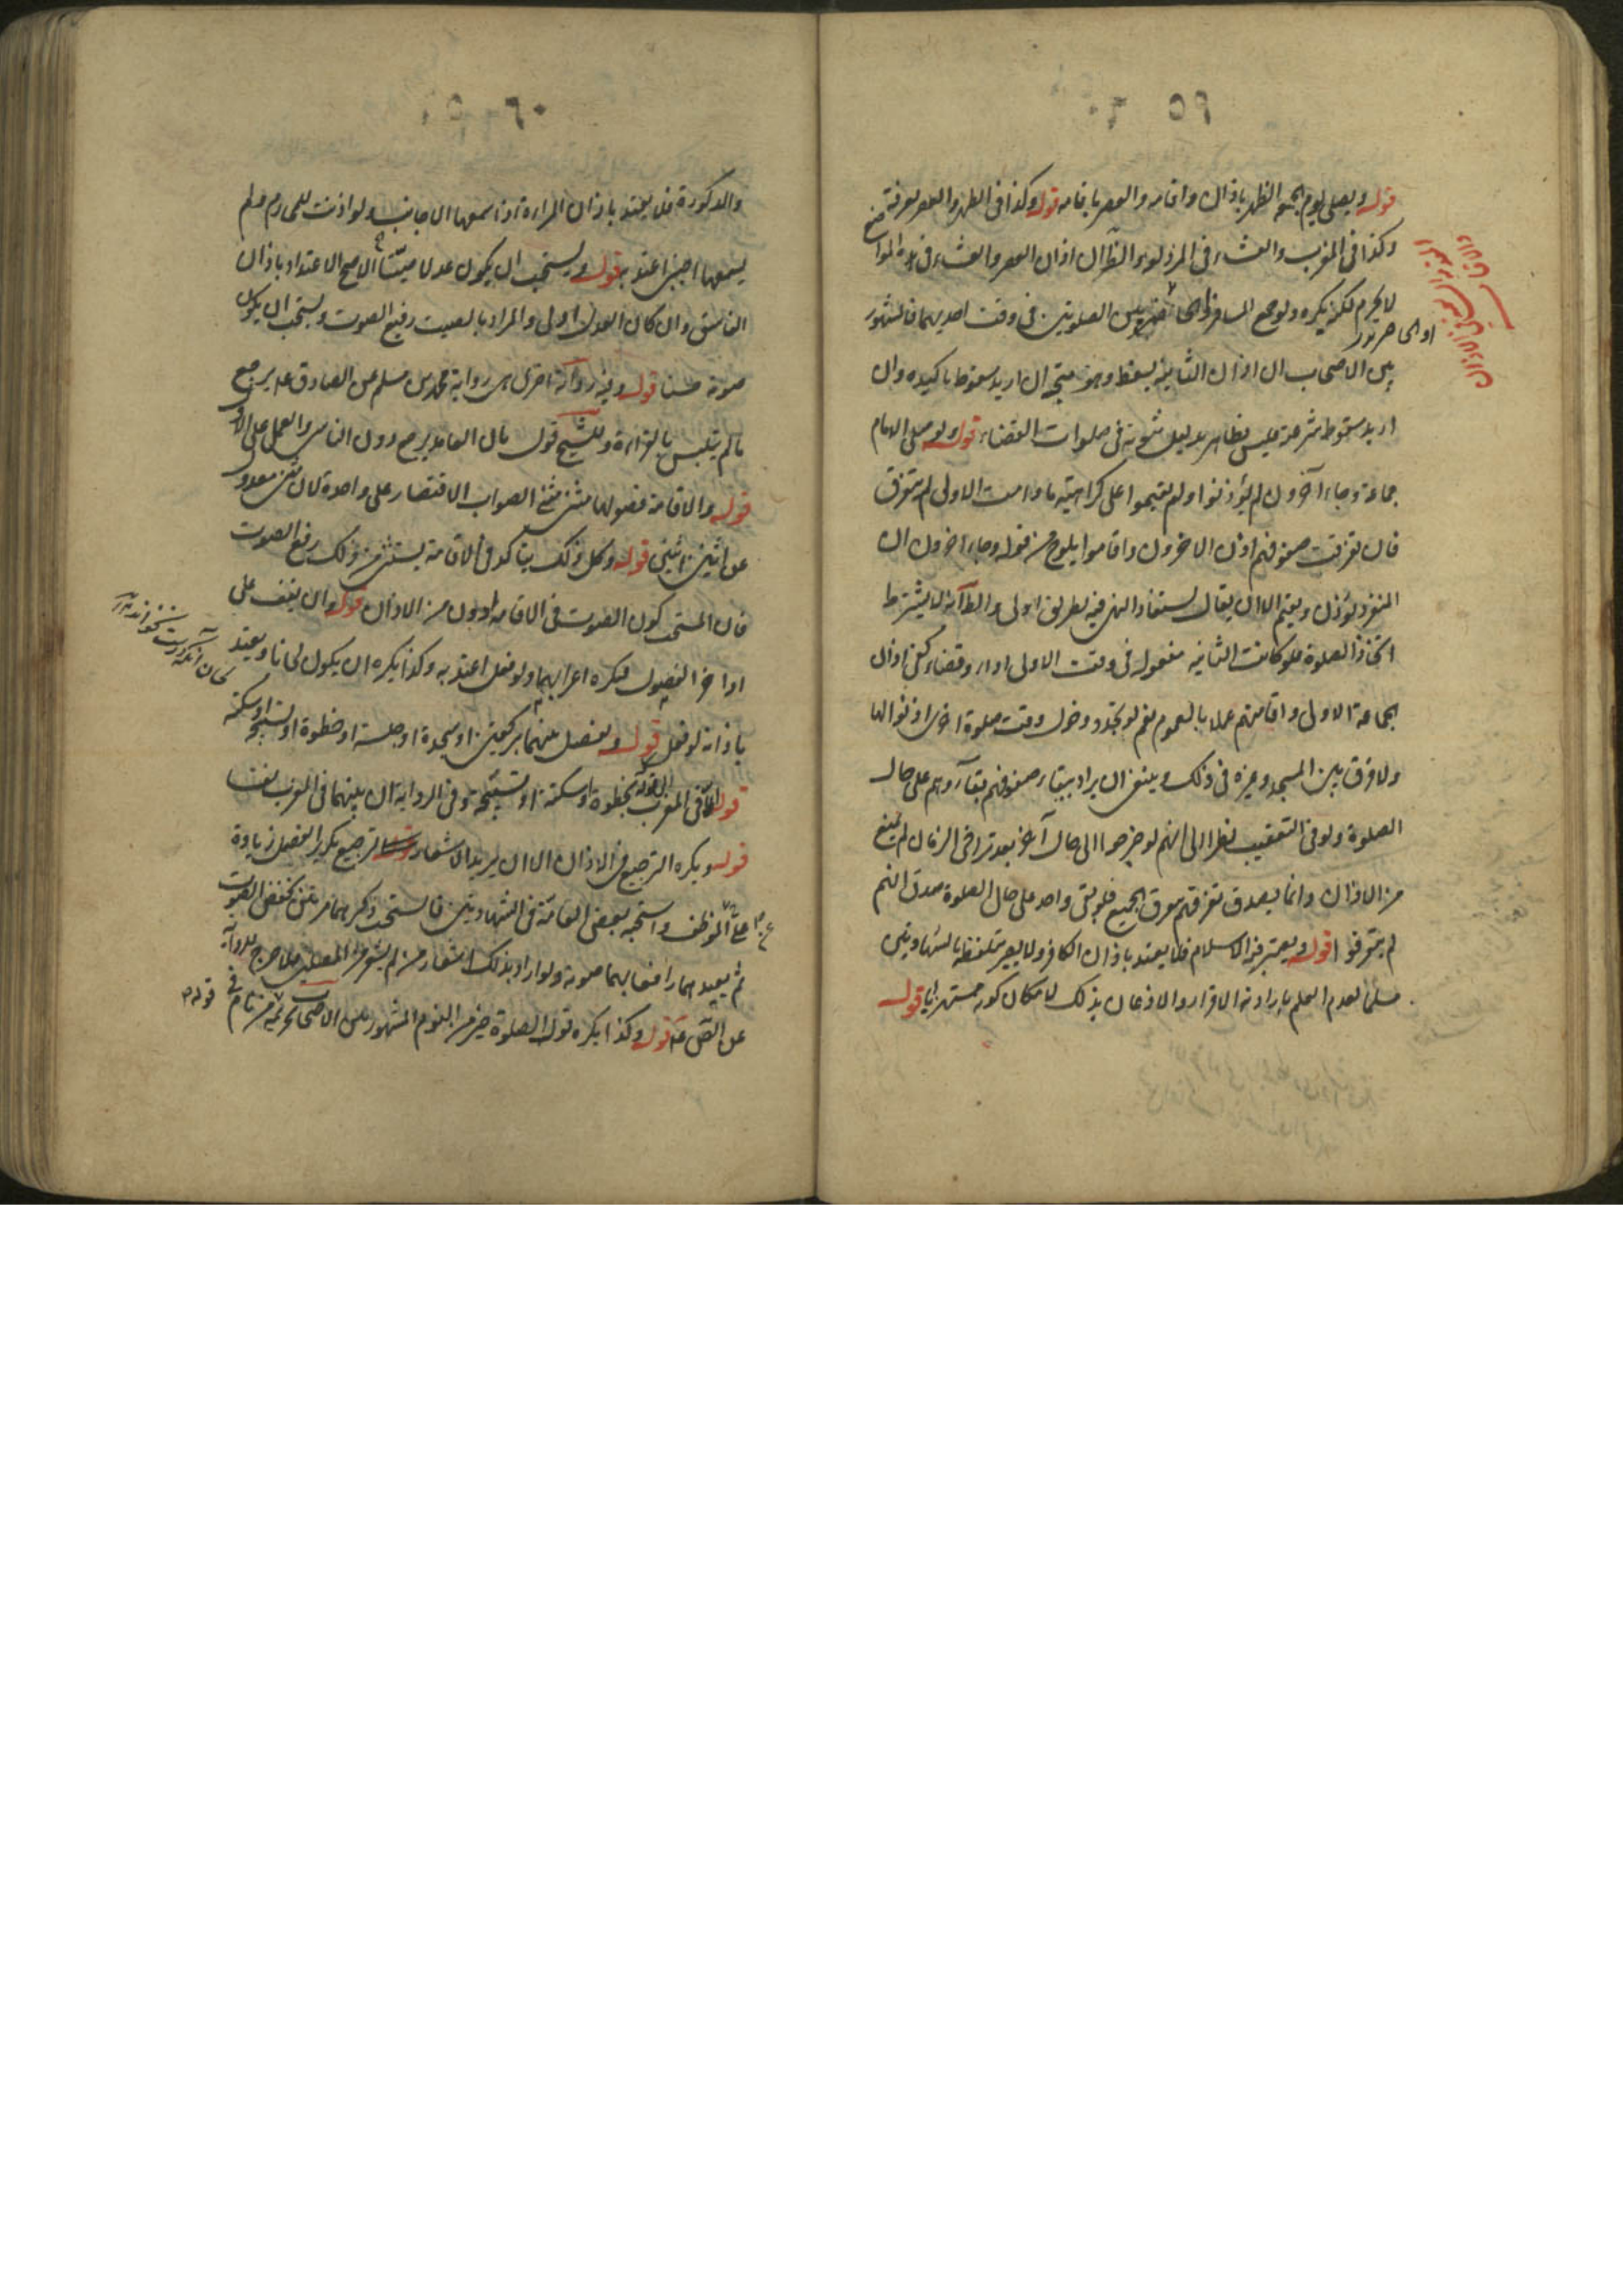 ٥٩
قوله ويصلى يوم الجمعة الظهر باذان واقامه والعصر باقامه قوله وكذا فى الظهر والعصر بعرفة
وكذا فى المغرب والعشاء فى المزدلفه والظ ان اذان العصر والعشاء فى هذه المواضع
لا يحرم لكن يكره ولو جمع المسافر او الحاضر بين الصلوتين فى وقت احديهما فالمشهور
بين الاصحاب ان اذان الثانيه يسقط وهو متجه ان اريد سقوط تاكيده وان
اريد سقوط شرعيته فليس بظاهر بدليل ثبوته فى صلوات القضاء قوله ولو صلى الامام
جماعة وجاء آخرون لم يؤذنوا ولم يقيموا على كراهيته ما دامت الاولى لم تتفرق
فان تفرقت صفوفهم اذن الاخرون واقاموا يلوح من قوله وجاء اخرون ان
المنفرد يؤذن ويقيم الا ان يقال يستفاد النهى فيه بطريق اولى والظ انه لا يشترط
اتحاد الصلوة فلو كانت الثانيه مفعوله فى وقت الاولى اداء وقضاء كفى اذان
الجماعة الاولى واقامتهم عملا بالعموم نعم لو تجدد دخول وقت صلوة اخرى اذنوا لها
ولا فرق بين المسجد وغيره فى ذلك وينبغى ان يراد ببقاء صفوفهم بقاؤهم على حال
الصلوة ولو فى التعقيب نظرا الى انهم لو خرجوا الى حال آخر بعد تراخى الزمان لم يمنع
من الاذان وانما يصدق تفرقهم بتفرق الجميع فلو بقى واحد على حال الصلوة صدق انهم
لم يتفرقوا قوله ويعتبر فيه الاسلام فلا يعتد باذان الكافر ولا يصير بتلفظه بالشهادتين
مسلما لعدم العلم بارادته الاقرار والاذعان بذلك لامكان كونه مستهزئا قوله
٦٠
والذكورة فلا يعتد باذان المراءة اذا سمعها الاجانب ولو اذنت للمحارم ولم
يسمعها اجنبى اعتد به قوله ويستحب ان يكون عدلا صيتا الاصح الاعتداد باذان
الفاسق وان كان العدل اولى والمراد بالصيت رفيع الصوت ويستحب ان يكون
صوته حسنا قوله وفيه رواية اخرى هى رواية محمد بن مسلم عن الصادق ع يرجع
ما لم يتلبس بالقراءة وللشيخ قول بان العامد يرجع دون الناسى والعمل على الاول
قوله والاقامة فصولها مثنى مثنى الصواب الاقتصار على واحدة لان مثنى معدول
عن اثنين اثنين قوله وكل ذلك يتاكد فى الاقامة يستثنى من ذلك رفع الصوت
فان المستحب كون الصوت فى الاقامه ادون من الاذان قوله وان يقف على
اواخر الفصول فيكره اعرابهما ولو فعل اعتد به وكذا يكره ان يكون لحانا ويعتد
باذانه لو فعل قوله ويفصل بينهما بركعتين او سجدة او جلسة او خطوة او تسبيحة او سكتة
قوله الا فى المغرب بخطوة او سكتة او تسبيحة وفى الرواية ان بينهما فى المغرب نفسا
قوله ويكره الترجيع فى الاذان الا ان يريد الاشعار الترجيع تكرير الفصل زيادة
على الموظف واستحبه بعض العامة فى الشهادتين فالمستحب ذكرهما مرتين بخفض الصوت
ثم يعيدهما رافعا بهما صوته ولو اراد بذلك اشعار من لم يشعر من المصلين فلا حرج للرواية
عن الص ع قوله وكذا يكره قول الصلوة خير من النوم المشهور بين الاصحاب تحريمه